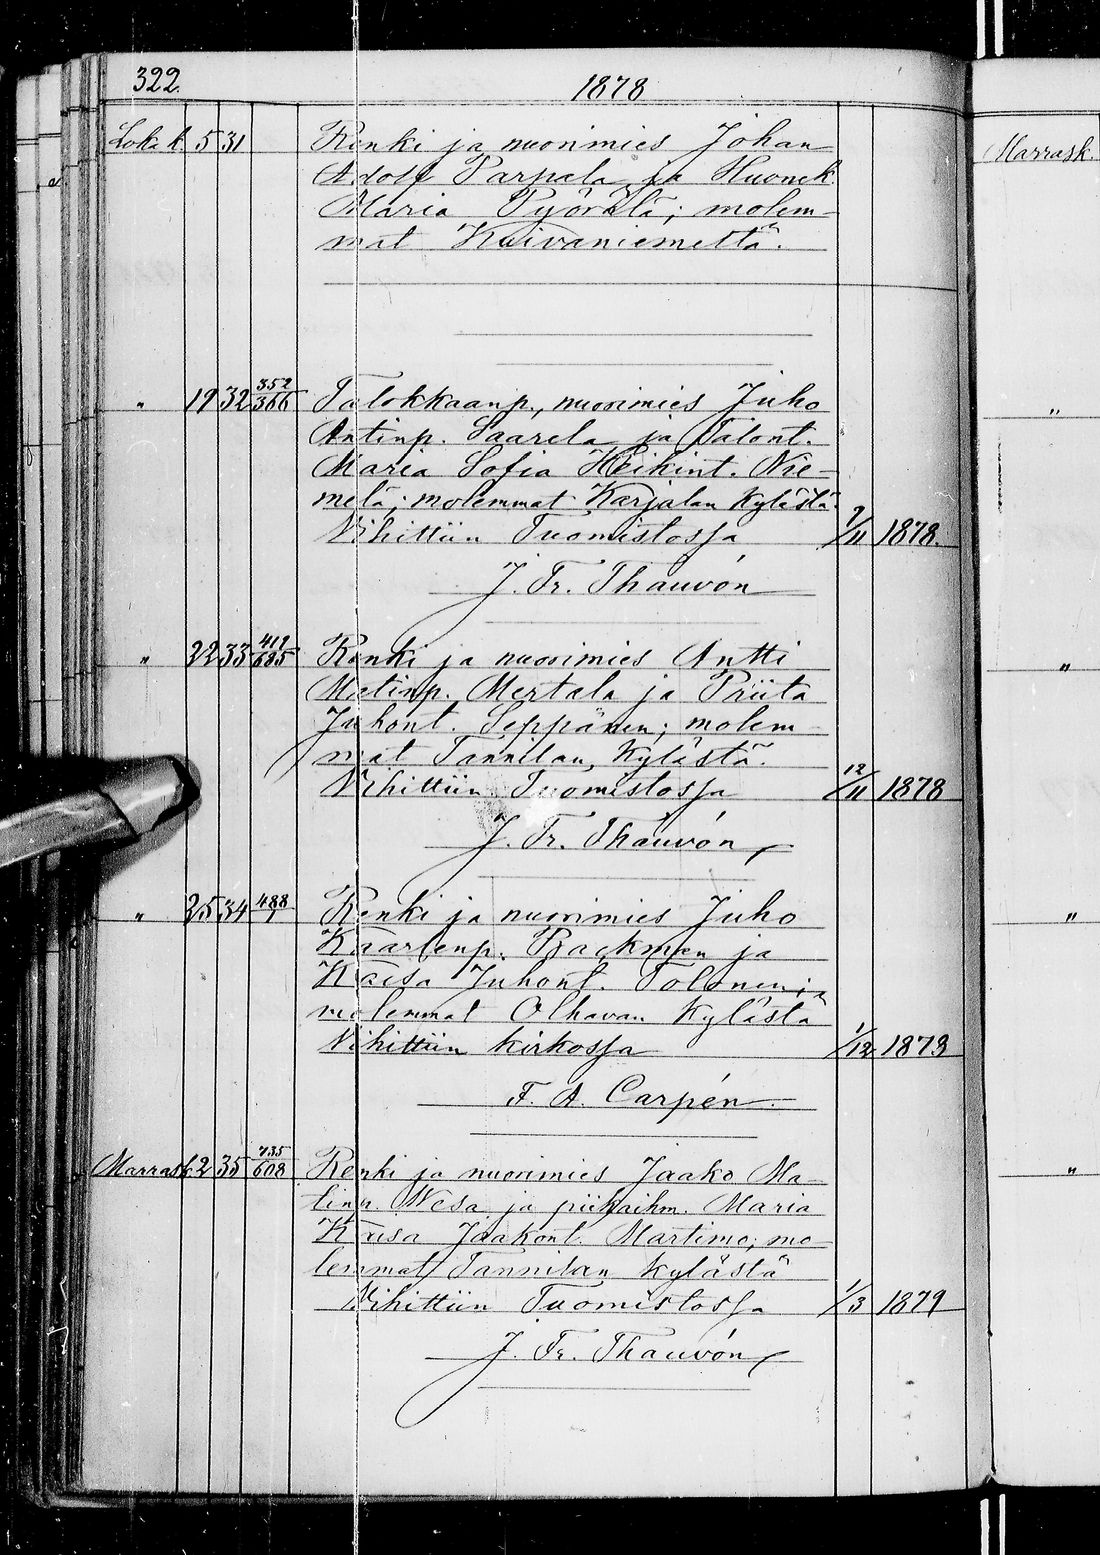 322.
1878
Lokak. 5 31 Renki ja nuorimies Johan
Adolf Parpala ja Huonek.
Maria Pyörälä; molem-
mat Kuivaniemeltä.
" 19 32 352/366 Talokkaanp., nuorimies Juho
Antinp. Saarela ja Talont.
Maria Sofia Heikint. Nie-
melä; molemmat Karjalan kylästä.
Vihittiin Tuomistossa 7/11 1878.
J. Fr. Thauvón
" 22 33 417/685 Renki ja nuorimies Antti
Matinp. Mertala ja Priita
Juhont. Seppänen; molem-
mat Tannilan kylästä.
Vihittiin Tuomistossa 12/11 1878
J. Fr. Thauvón
" 25 34 488/1 Renki ja nuorimies Juho
Kaarlenp. Backman ja
Kaisa Juhont. Tolonen;
molemmat Olhavan kylästä
Vihittiin kirkossa 1/12 1878
F. A. Carpén.
Marrask. 2 35 735/608 Renki ja nuorimies Jaako Ma-
tinp. Wesa ja piikaihm. Maria
Kaisa Jaakont. Martimo; mo-
lemmat Tannilan kylästä
Vihittiin Tuomistossa 1/3 1879
J. Fr. Thauvón
Marrask.
"
"
"
"